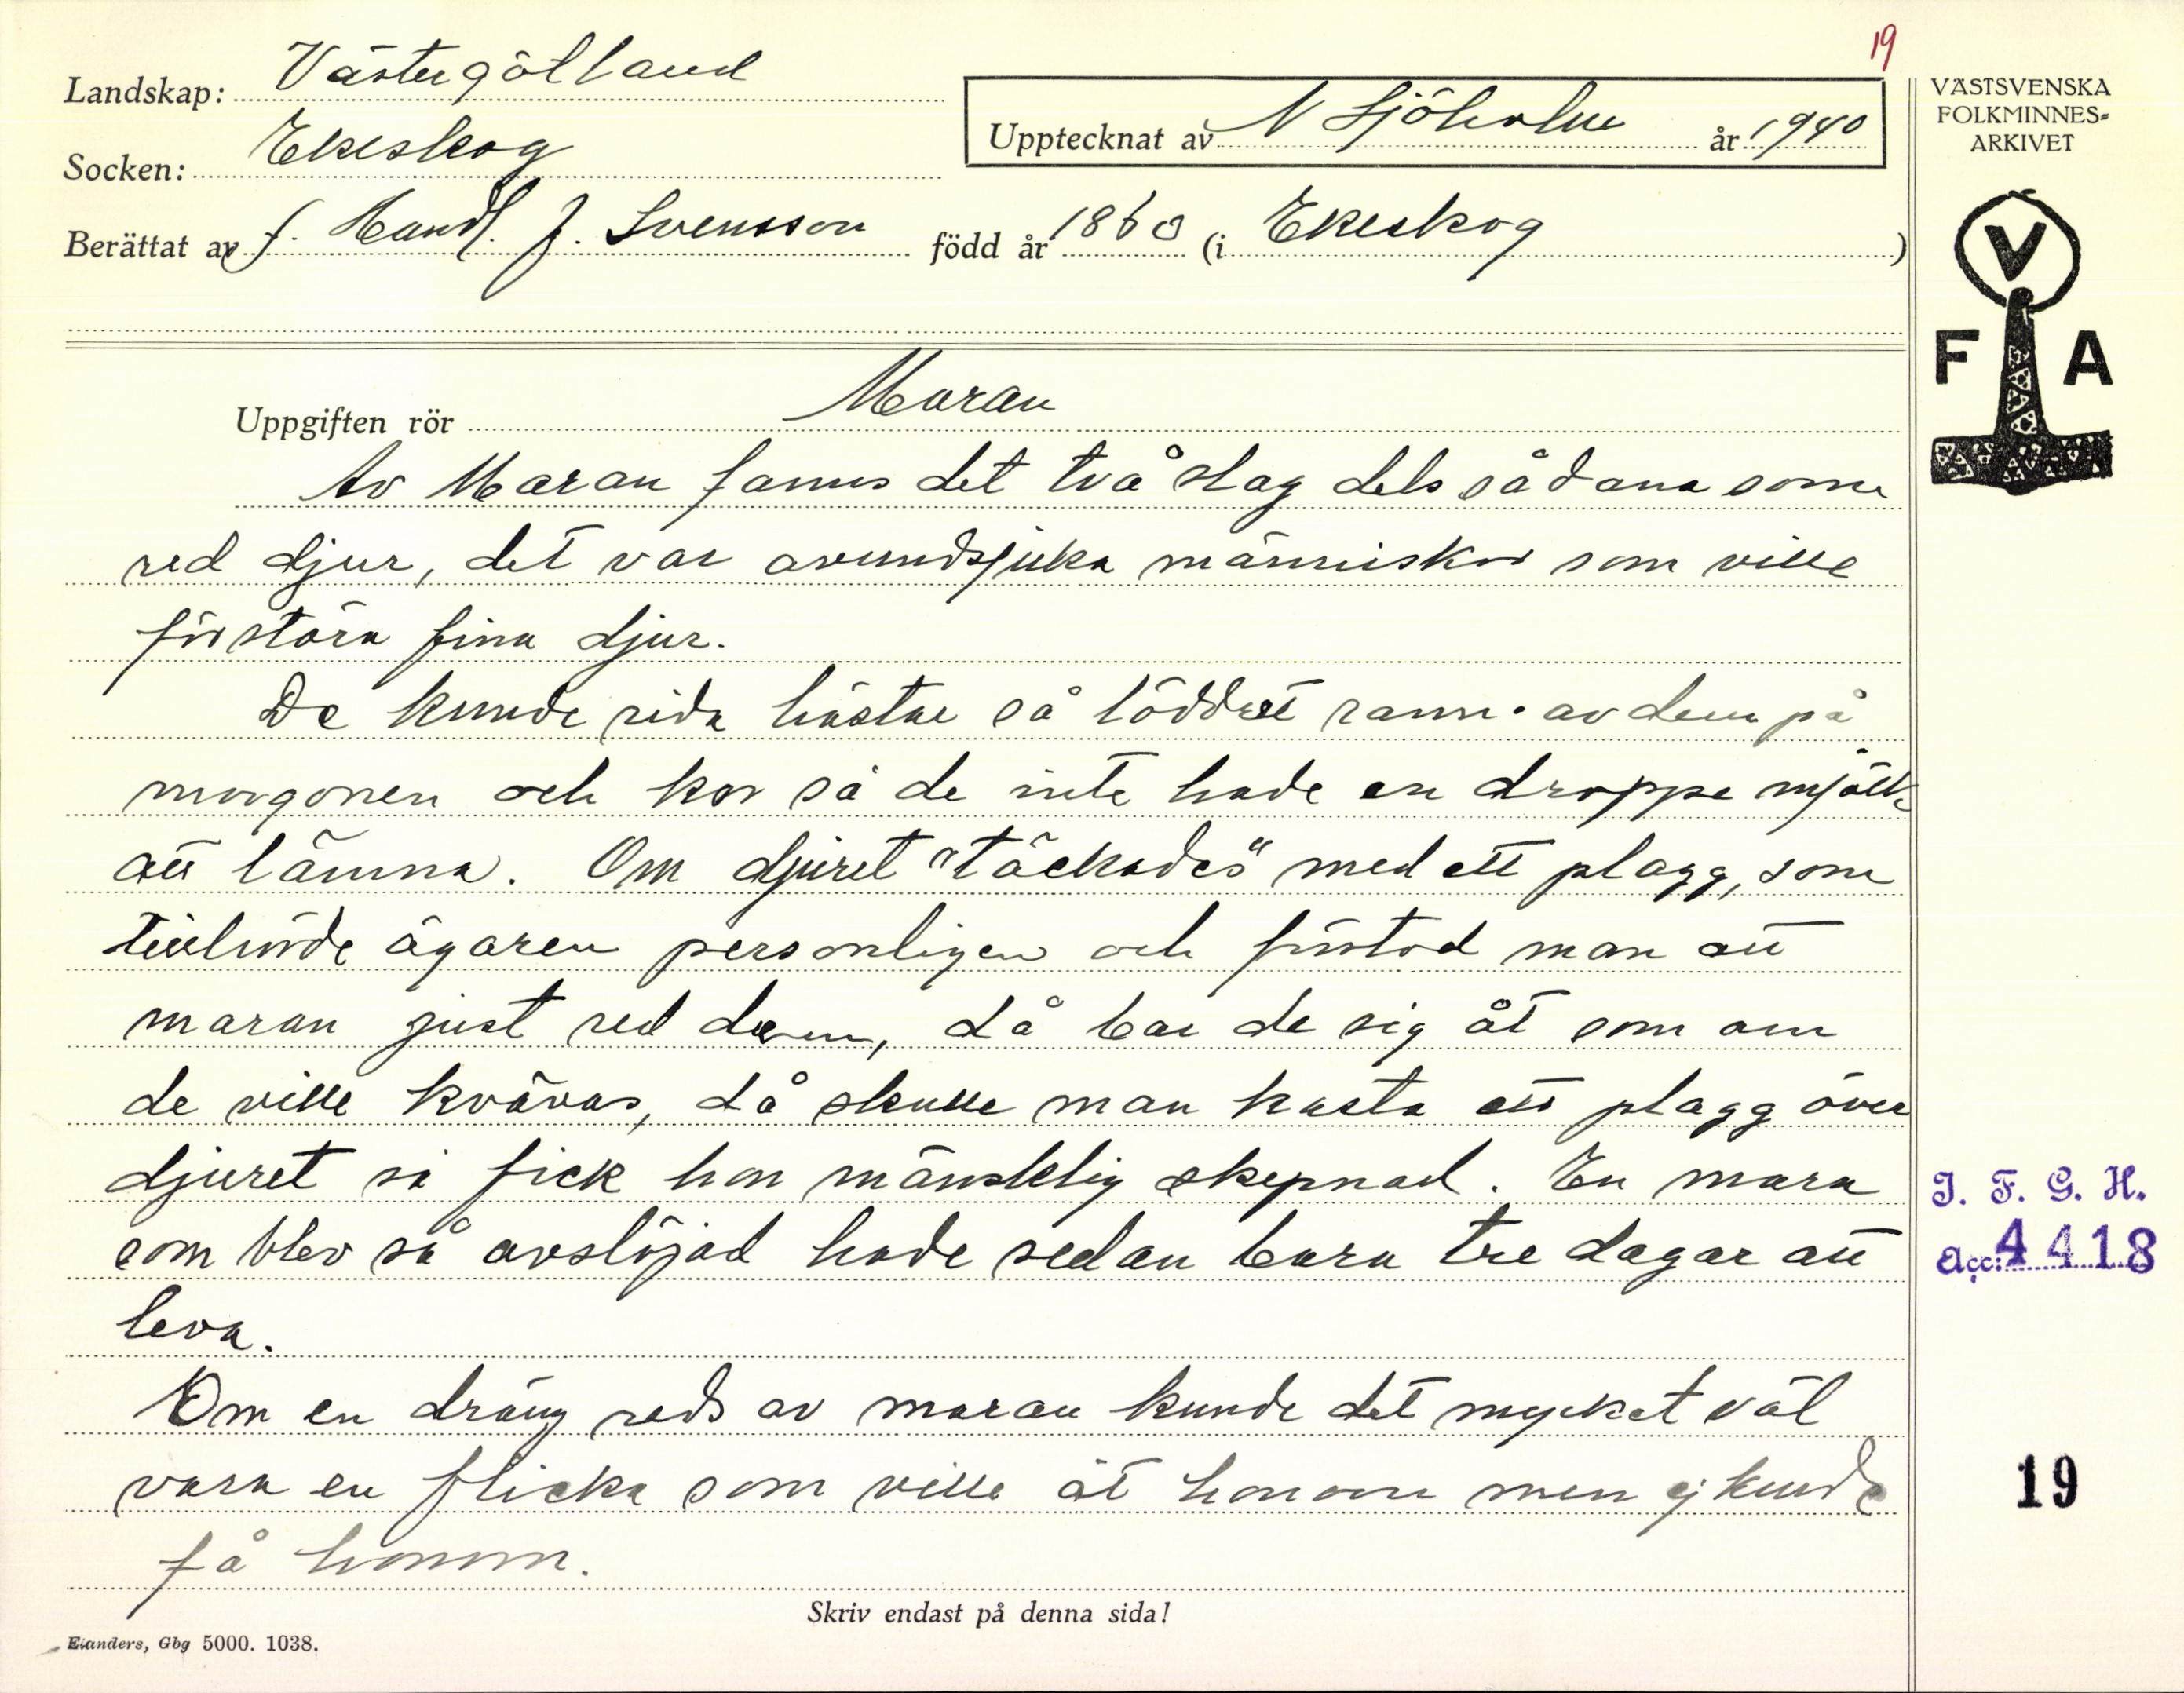 19
Landskap: Västergötland
Socken: Ekeskog
Upptecknat av N Sjöholm år 1940
Berättat av f. Handl. J. Svensson född år 1860 (i Ekeskog)
VÄSTSVENSKA
FOLKMINNES-
ARKIVET
V
F A
Uppgiften rör Maran
Av Maran fanns det två slag dels sådana som
red djur, det var avundsjuka människor som ville
förstöra fina djur.
De kunde rida hästar så löddret rann av dem på
morgonen och kor så de inte hade en droppe mjölk
att lämna. Om djuret "täckades" med ett plagg, som
tillhörde ägaren personligen och förstod man att
maran just red dem, då bar de sig åt som om
de ville kvävas, då skulle man kasta ett plagg över
djuret så fick hon mänsklig skepnad. En mara
som blev så avslöjad hade sedan bara tre dagar att
leva.
Om en dräng reds av maran kunde det mycket väl
vara en flicka som ville åt honom men ej kunde
få honom.
I. F. G. H.
Acc: 4418
19
Skriv endast på denna sida!
Elanders, Gbg 5000. 1038.